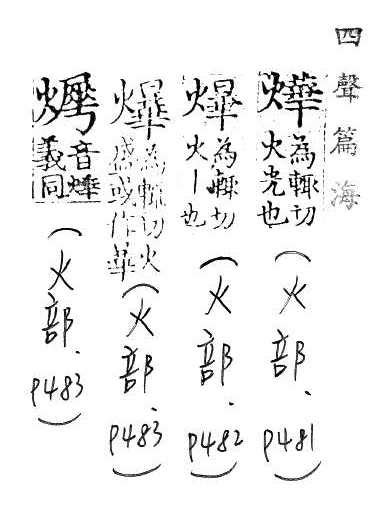 四聲篇海
燁 為輒切
火光也
(火部.P481)
為輒切
火丨也
(火部.P482)
為輒切火
盛或作華
(火部.P483)
音燁
義同
(火部.P483)